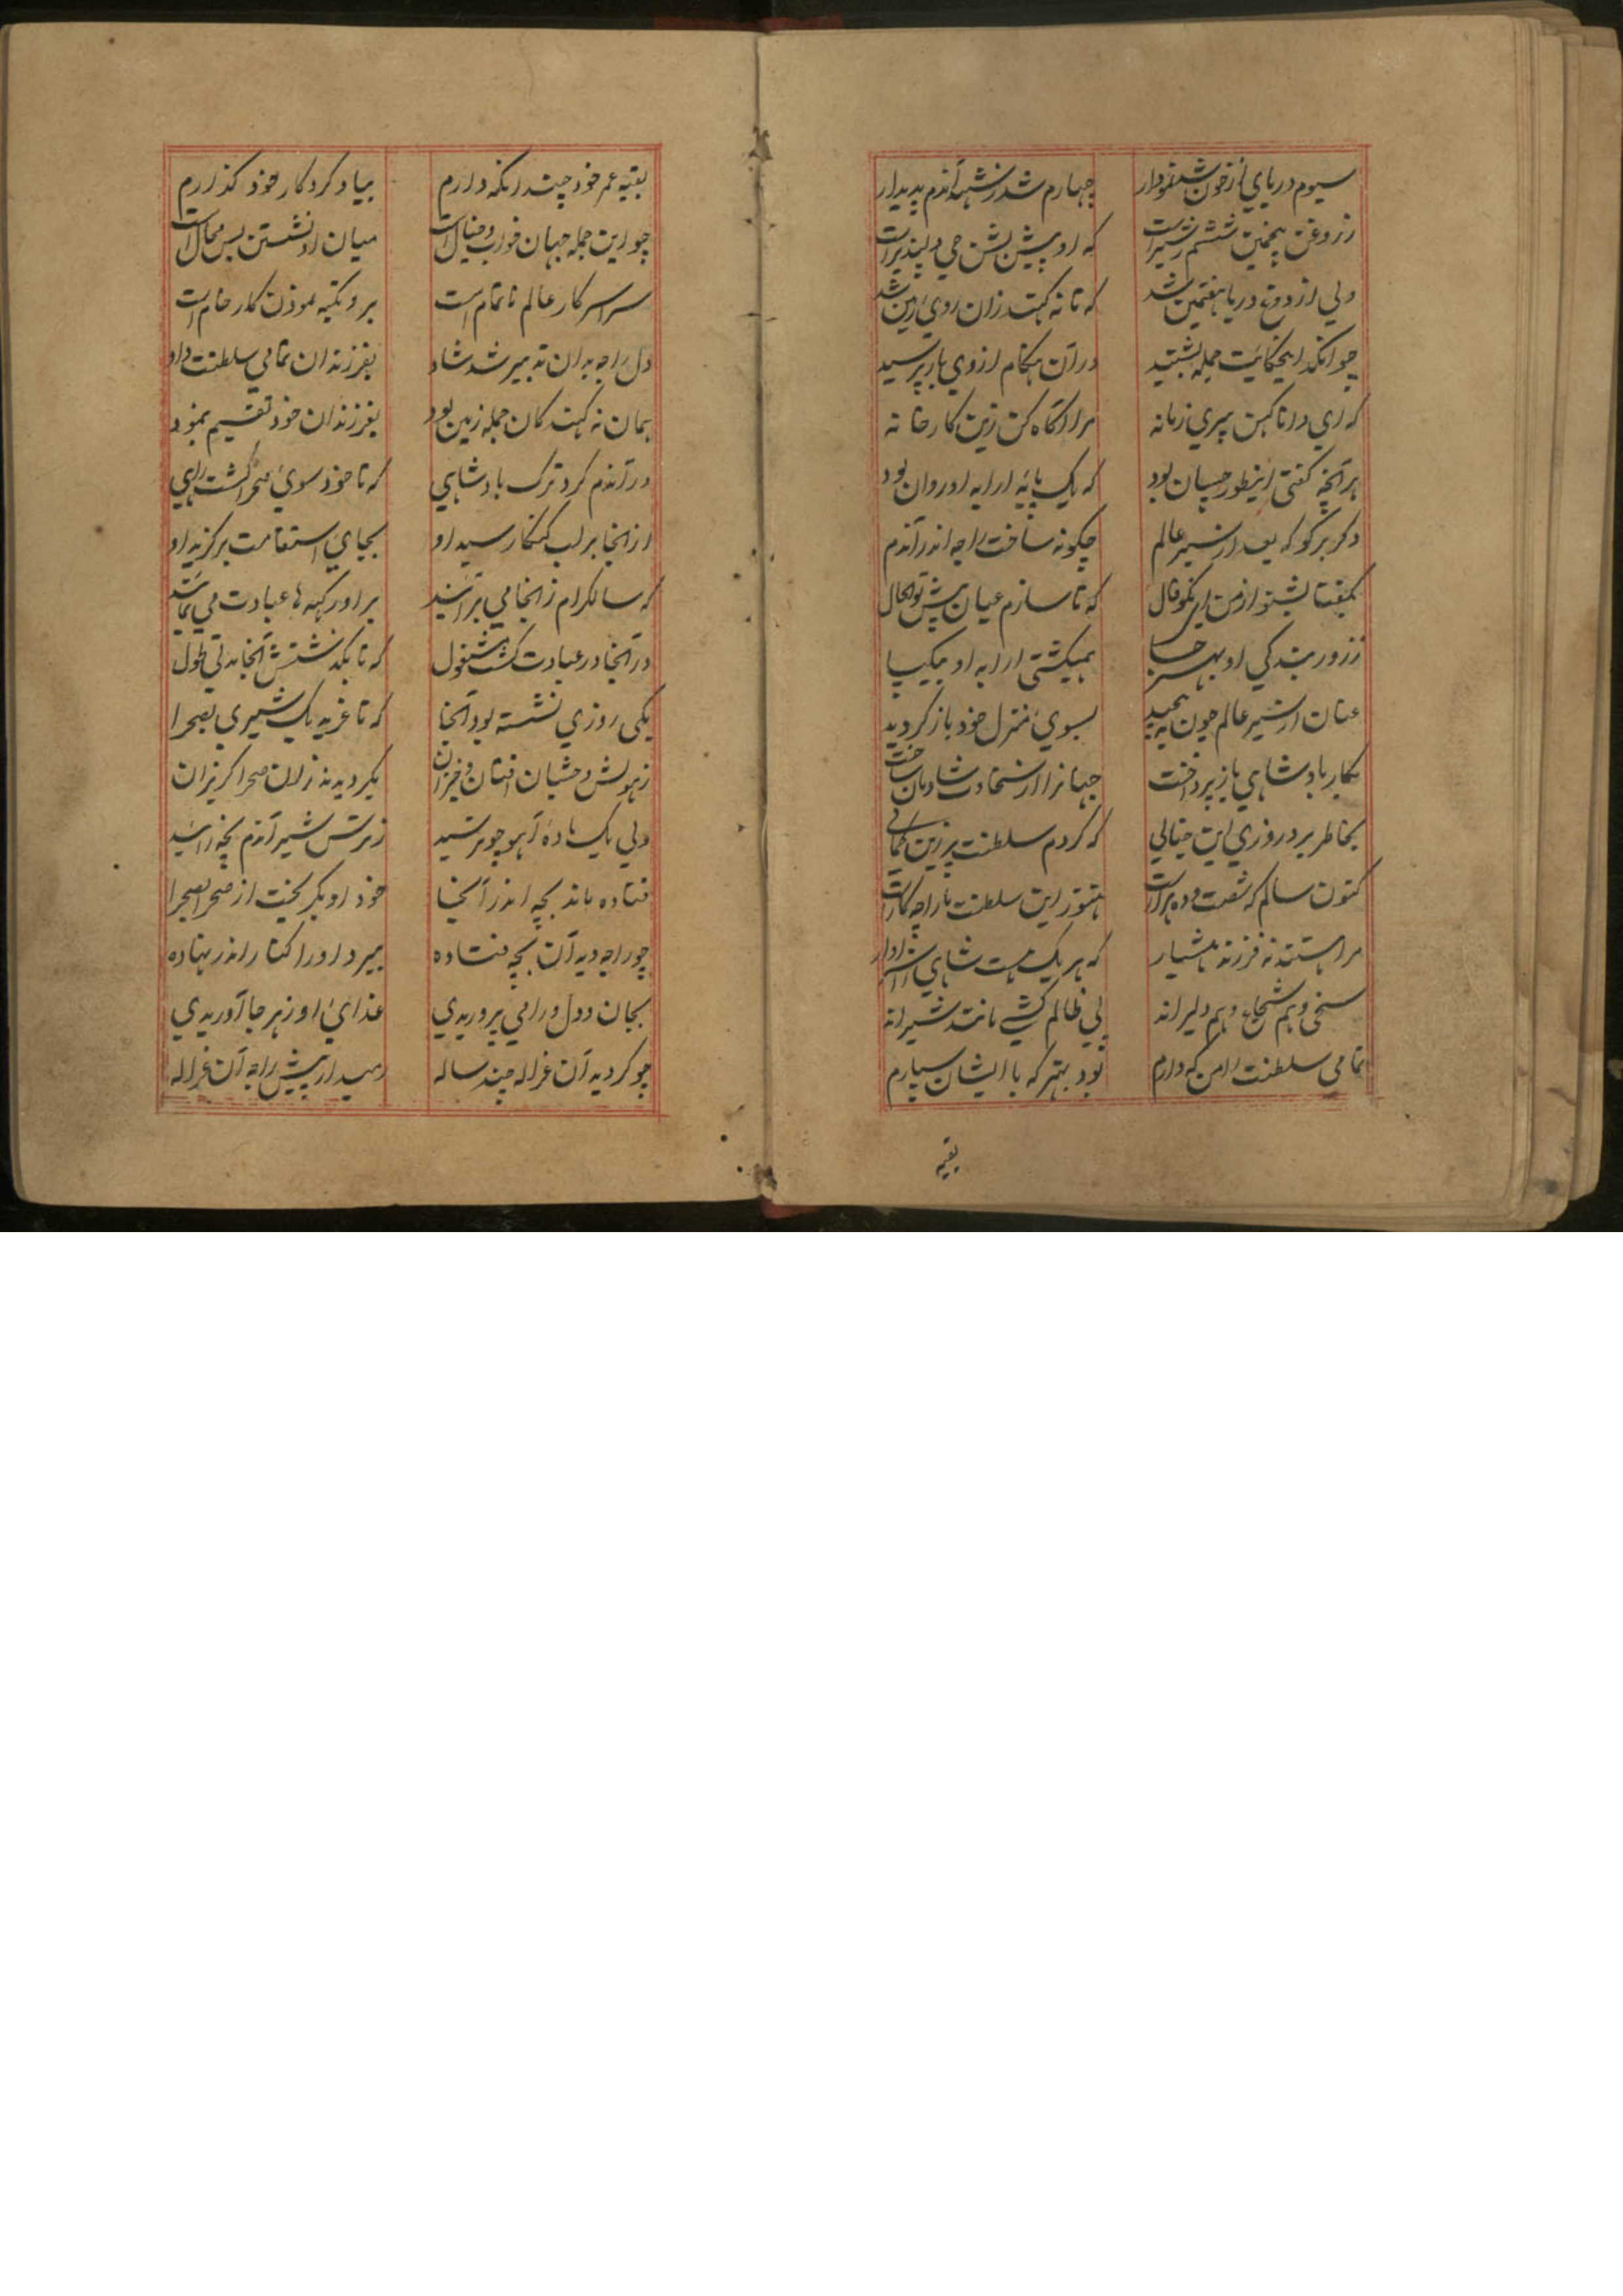 سیوم دریای از خون شد نمودار چهارم شد ز شهد آندم پدیدار
ز روغن پنجمین ششم ز شیر است که او پیش بشن جی دلپذیر است
ولی از دوغ دریا هفتمین شد که تا نه کهند زان روی زمین شد
چو انکد اینحکایت جمله بشنید در آن هنکام از وی باز پرسید
که ای دانا کهن پیری زمانه مرا آگاه کن زین کارخانه
هر آنچه کفتی اینطور چسپان بود که یک پائه ارابه او روان بود
دکر برکو که بعد از سیر عالم چکونه ساخت راجه اندر آندم
بکفتا بشنو از من ای نکو فال که تا سازم عیان پیش تو احوال
ز زور بندکی او بهر جا همیکشتی ارابه او بیکپا
عنان از سیر عالم چون به پیچید بسوی منزل خود باز کردید
بکار بادشاهی باز پرداخت جهانرا از سخاوت شادمان ساخت
بخاطر برد روزی این خیالی که کردم سلطنت بر زین کمالی
کنون سالم که شصت و ده هزار است هنوز این سلطنت را راجه کار است
مرا هستند نه فرزند هشیار که هر یک هست شاهی را سزاوار
سخی و هم شجاع و هم دلیرانه پی ظالم کشی مانند شیرانه
تمامی سلطنت را من که دارم بود بهتر که با ایشان سپارم
بقیه
بقیه عمر خود چندانکه دارم بیاد کردکار خود کذارم
چو این جمله جهان خواب و خیال است میان او نشستن بس محال است
سراسر کار عالم ناتمام است برو تکیه نمودن کار خام است
دل راجه بدان تدبیر شد شاد بفرزندان تمامی سلطنت داد
بمان نه کهند کان جمله زمین بود بفرزندان خود تقسیم بنمود
در آندم کرد ترک بادشاهی که تا خود سوی صحرا کشت راهی
از انجا بر لب کنکا رسید او بجای استقامت برکزید او
که سالکرام ز انجا می برآیند برادر کهه ها عبادت می نمایند
در آنجا در عبادت کشت مشغول که تا بکذشتش آنجا مدتی طول
یکی روزی نشسته بود آنجا که تا غرید یک شیری بصحرا
ز هولش وحشیان افتان و خیزان بکردیدند زان صحرا کریزان
ولی یک ماده آهو چو ترسید ز ترس شیر آندم بچه زائید
فتاده ماند بچه اندر آنجا خود او بکریخت از صحرا بصحرا
چو راجه دید آن بچه فتاده ببرد او را کنار اندر نهاده
بجان و دل ورا می پروریدی غذای او ز هر جا آوریدی
چو کردید آن غزاله چند ساله رمید از پیش راجه آن غزاله